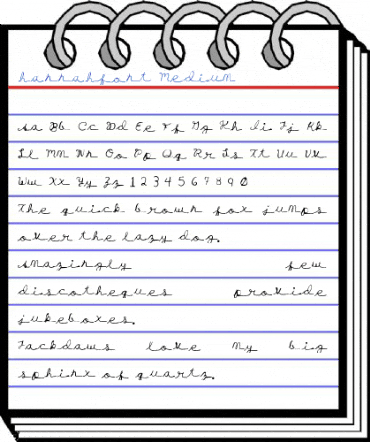 hannahfont Medium
Aa Bb Cc Dd Ee Ff Gg Hh Ii Jj Kk
Ll Mm Nn Oo Pp Qq Rr Ss Tt Uu Vv
Ww Xx Yy Zz 1 2 3 4 5 6 7 8 9 0
The quick brown fox jumps
over the lazy dog.
Amazingly few
discotheques provide
jukeboxes.
Jackdaws love my big
sphinx of quartz.